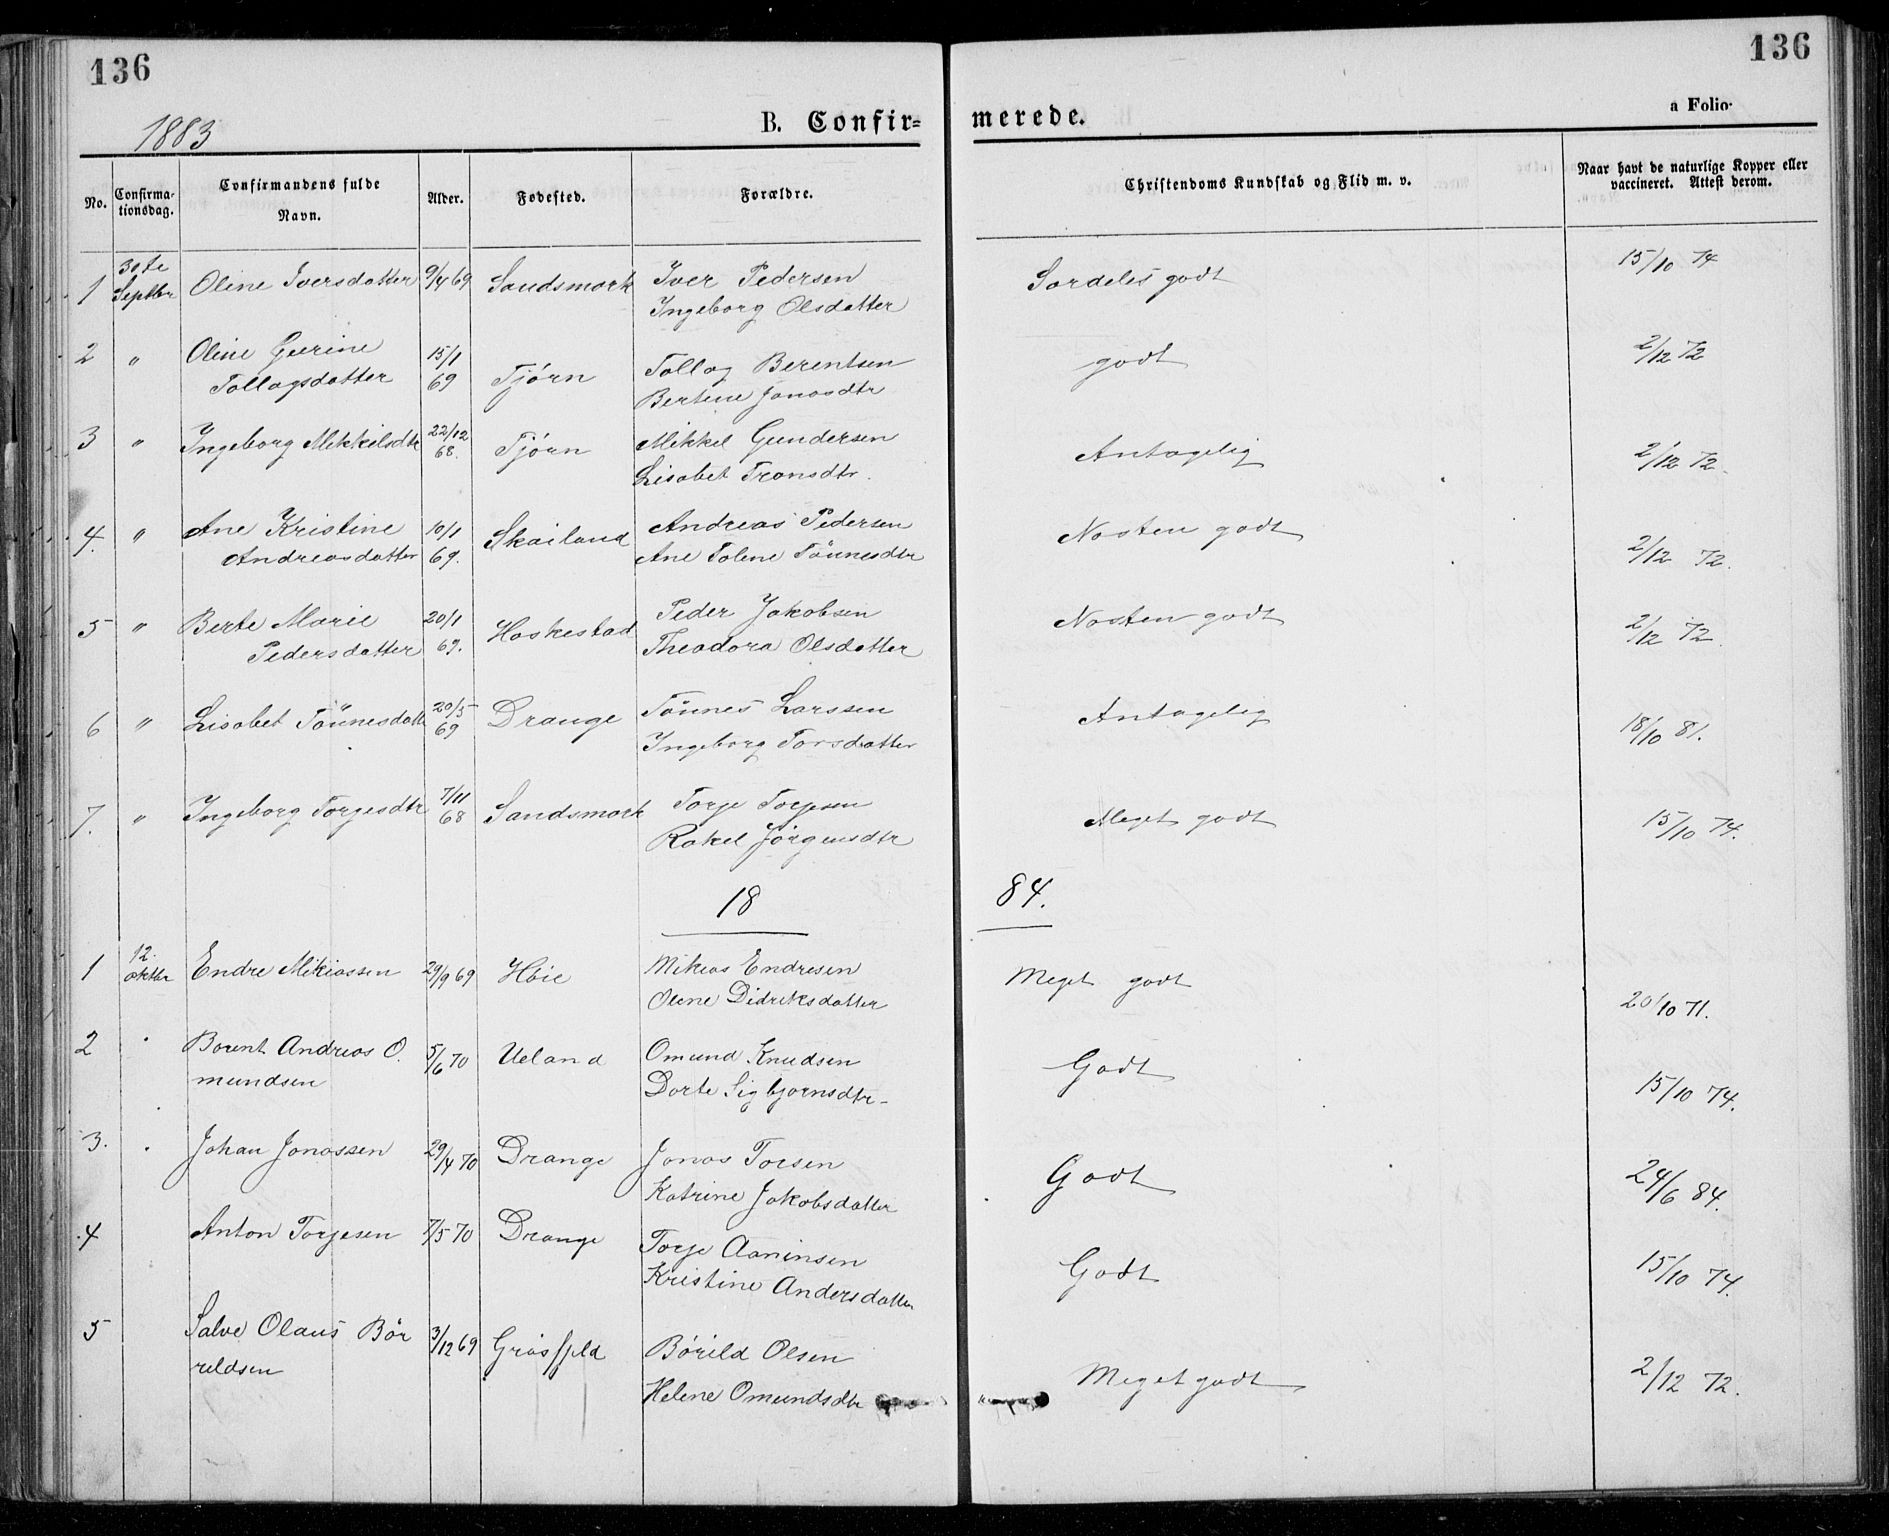 136
136
a Folio.
1883
B. Confir=
merede.
No.
Confirma-
tionsdag.
Confirmandens fulde
Navn.
Alder.
Fødested.
Forældre.
Christendoms Kundskab og Flid m. v.
Naar havt de naturlige Kopper eller
vaccineret. Attest derom.
1 30te Septbr Oline Iversdatter 9/4 69 Sandsmark Iver Pedersen
Ingeborg Olsdatter
Særdeles godt 15/10 74
2 " Oline Gurine 15/1 Tollag Berentsen
Tollagsdatter 69 Tjørn Bertine Jonasdtr
godt 2/12 72
3 " Ingeborg Mikkelsdtr 22/12 68. Tjørn Mikkel Gundersen
Lisabet Transdtr.
Antagelig 2/12 72.
4. " Ane Kristine 10/1 Skailand Andreas Pedersen
Andreasdatter 69. Ane Tolene Tönnesdtr
Næsten godt 2/12 72.
5 " Berte Marie 20/1 Haskestad Peder Jakobsen
Pedersdatter 69. Theodora Olsdatter
Næsten godt 2/12 72.
6 " Lisabet Tönnesdatt 20/5 69 Drange Tönnes Larssen
Ingeborg Torsdatter
Antagelig 18/10 81.
7. " Ingeborg Torgesdtr 7/11 68 Sandsmark Torje Torjesen
Rakel Jørgensdtr
Meget godt 15/10 74.
18 84.
1 12. oktbr Endre Mikiassen 29/9 69 Høie Mikias Endresen
Olene Didriksdatter
Meget godt 20/10 71.
2 . Berent Andreas O. 5/6 70 Ueland Omund Knudsen
mundsen Dorte Sigbjørnsdtr-
Godt 15/10 74.
3. . Johan Jonassen 29/4 70 Drange Jonas Torsen
Katrine Jakobsdatter
Godt 24/6 84.
4 Anton Torjesen 7/5 70 Drange Torje Aaninsen
Kristine Andersdatter
Godt 15/10 74.
5 Salve Olaus Bör 3/12 69 Gråsfjeld Börild Olsen
reldsen Helene Omundsdtr
Meget godt 2/12 72.